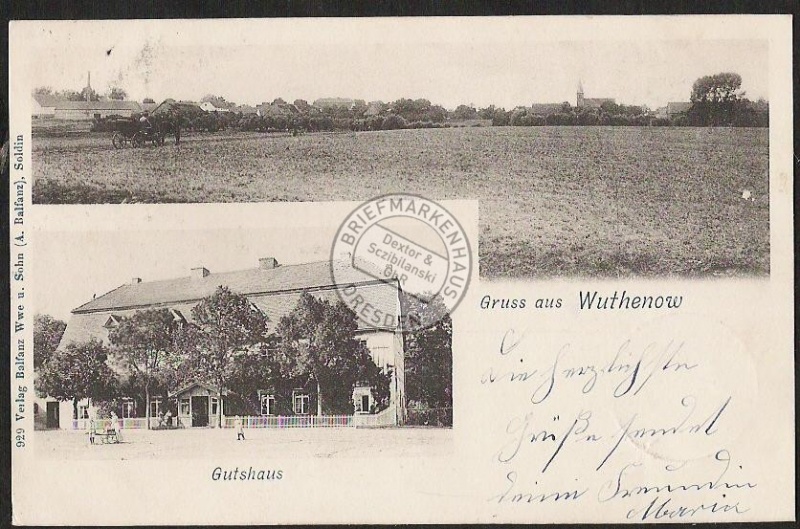 929 Verlag Balfanz Wwe u. Sohn (A. Balfanz), Soldin
BRIEFMARKENHAUS
Dextor &
Sczibilanski
GbR
DRESDEN
Gruss aus Wuthenow
Gutshaus
Die herzlichste
Grüße sendet
deine Freundin
Maria